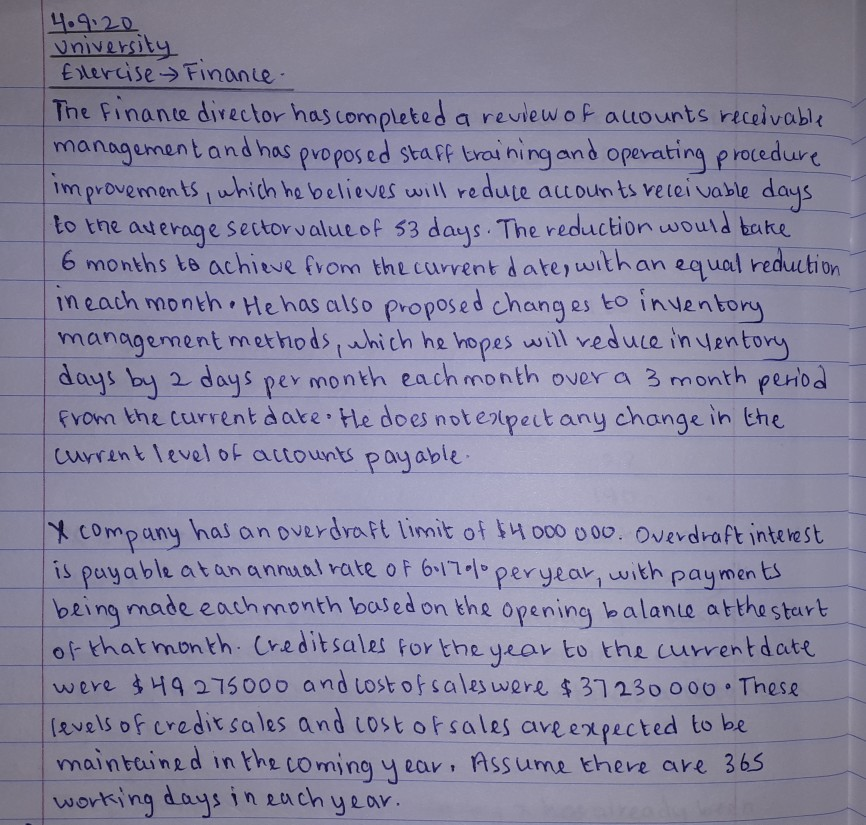 4.9.20
University
Exercise → Finance.
The Finance director has completed a review of accounts receivable
management and has proposed staff training and operating procedure
improvements, which he believes will reduce accounts receivable days
to the average sector value of 53 days. The reduction would take
6 months to achieve from the current date, with an equal reduction
in each month. He has also proposed changes to inventory
management methods, which he hopes will reduce inventory
days by 2 days per month each month over a 3 month period
from the current date. He does not expect any change in the
current level of accounts payable.
X company has an overdraft limit of $4 000 000. Overdraft interest
is payable at an annual rate of 6.17% per year, with payments
being made each month based on the opening balance at the start
of that month. Credit sales for the year to the current date
were $49 275000 and cost of sales were $37 230 000. These
levels of credit sales and cost of sales are expected to be
maintained in the coming year. Assume there are 365
working days in each year.